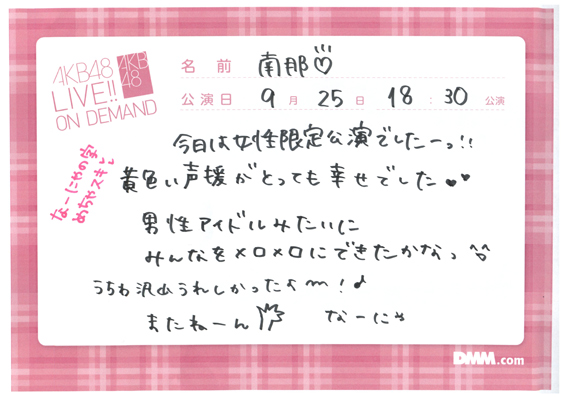 AKB48
LIVE!!
ON DEMAND
AKB
48
名前 南那♡
公演日 9月25日 18:30 公演
今日は女性限定公演でしたーっ!!
黄色い声援がとっても幸せでした♥♥
なーにゃの字
めちゃスキし
男性アイドルみたいに
みんなをメロメロにできたかなっ
うちわ沢山うれしかったよ〜!♪
またねーん なーにゃ
DMM.com